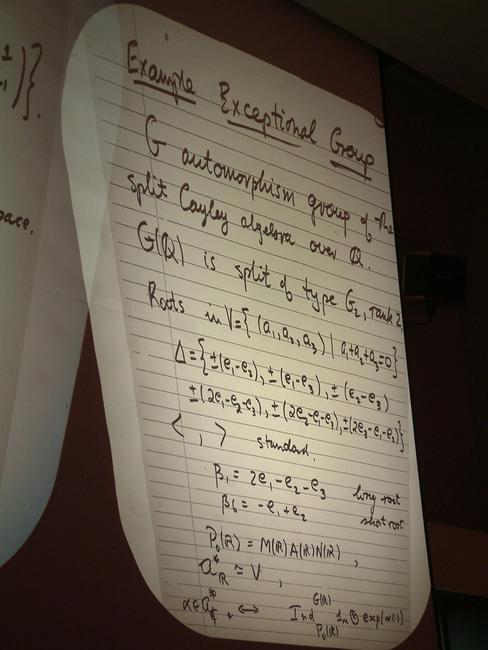 1
-1)}.
pace.
Example Exceptional Group
G automorphism group of the
split Cayley algebra over Q.
G(Q) is split of type G₂, rank 2
Roots in V={(a₁,a₂,a₃) | a₁+a₂+a₃=0}
Δ={±(e₁-e₂), ±(e₁-e₃), ±(e₂-e₃)
±(2e₁-e₂-e₃), ±(2e₂-e₁-e₃), ±(2e₃-e₁-e₂)}
< , > standard.
β₁ = 2e₁-e₂-e₃ long root
β₆ = -e₁+e₂ short root
P₀(R) = M(R)A(R)N(R) ,
𝔞*_R ≃ V ,
α∈𝔞*_ℂ, ↔ Ind^{G(R)}_{P₀(R)} 1_M⊗exp(α(·)